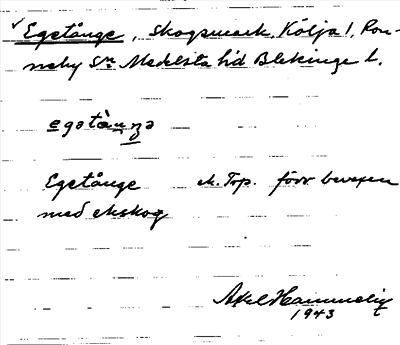 ✓ Egetånge, skogsmark, Kölja 1, Ron-
neby Sn Medelsta hd Blekinge l.
egətànʒə
Egetånge ek. Top. förr bevexen
med ekskog
Axel
1943